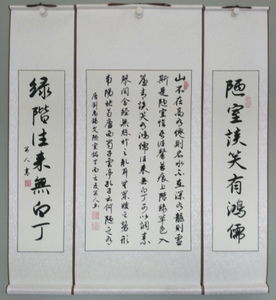 陋室談笑有鴻儒
山不在高有僊則名水不在深有龍則靈
斯是陋室惟吾德馨苔痕上階緑草色入
簾青談笑有鴻儒往来無白丁可以調素
琴閲金經無絲竹之亂耳無案牘之勞形
南陽諸葛廬西蜀子雲亭孔子云何陋之有
唐劉禹錫文陋室銘
绿階往来無白丁